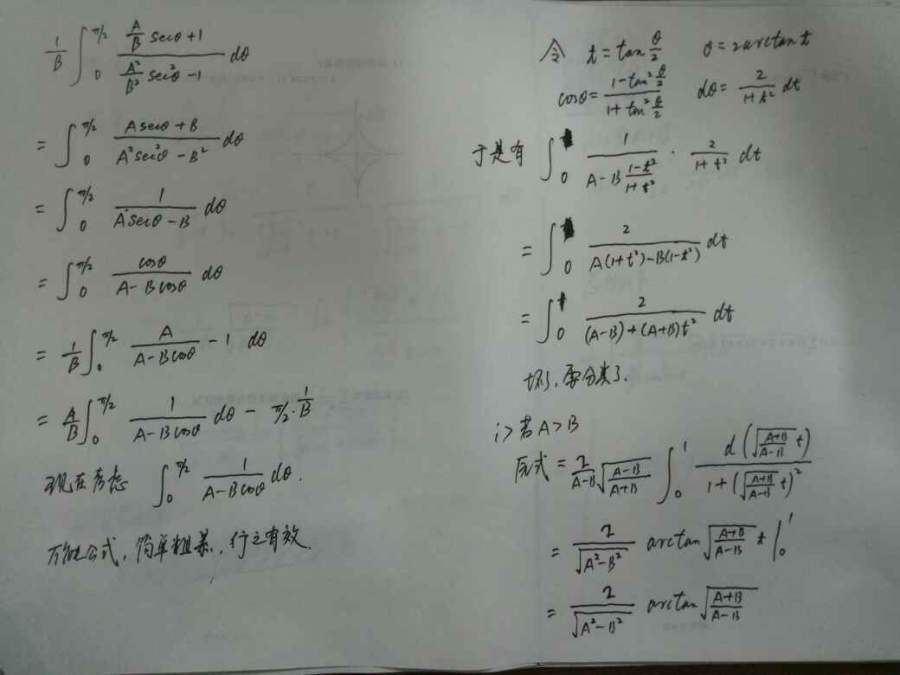 1/B ∫₀^{π/2} (A/B secθ + 1)/(A²/B² sec²θ - 1) dθ
= ∫₀^{π/2} (A secθ + B)/(A² sec²θ - B²) dθ
= ∫₀^{π/2} 1/(A secθ - B) dθ
= ∫₀^{π/2} cosθ/(A - B cosθ) dθ
= 1/B ∫₀^{π/2} A/(A - B cosθ) - 1 dθ
= A/B ∫₀^{π/2} 1/(A - B cosθ) dθ - π/2 · 1/B
现在考虑 ∫₀^{π/2} 1/(A - B cosθ) dθ.
万能公式, 简单粗暴, 行之有效.
令 t = tan θ/2 θ = 2 arctan t
cosθ = (1 - tan² θ/2)/(1 + tan² θ/2) dθ = 2/(1+t²) dt
于是有 ∫₀^1 1/(A - B (1-t²)/(1+t²)) · 2/(1+t²) dt
= ∫₀^1 2/(A(1+t²) - B(1-t²)) dt
= ∫₀^1 2/((A-B) + (A+B)t²) dt
坏了, 要分类了.
i> 若 A > B
原式 = 2/(A-B) √((A-B)/(A+B)) ∫₀^1 d(√((A+B)/(A-B)) t)/(1 + (√((A+B)/(A-B)) t)²)
= 2/√(A²-B²) arctan √((A+B)/(A-B)) t |₀^1
= 2/√(A²-B²) arctan √((A+B)/(A-B))